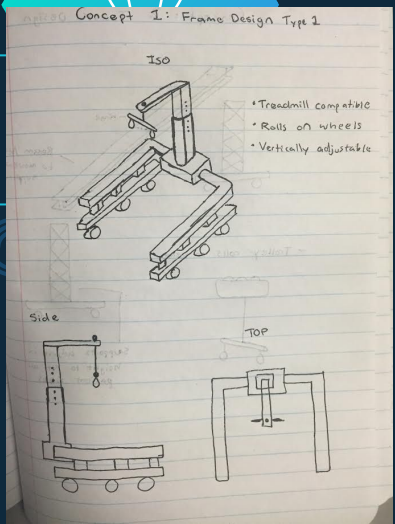 Concept 1: Frame Design Type 1
ISO
• Treadmill compatible
• Rolls on wheels
• Vertically adjustable
Side
TOP